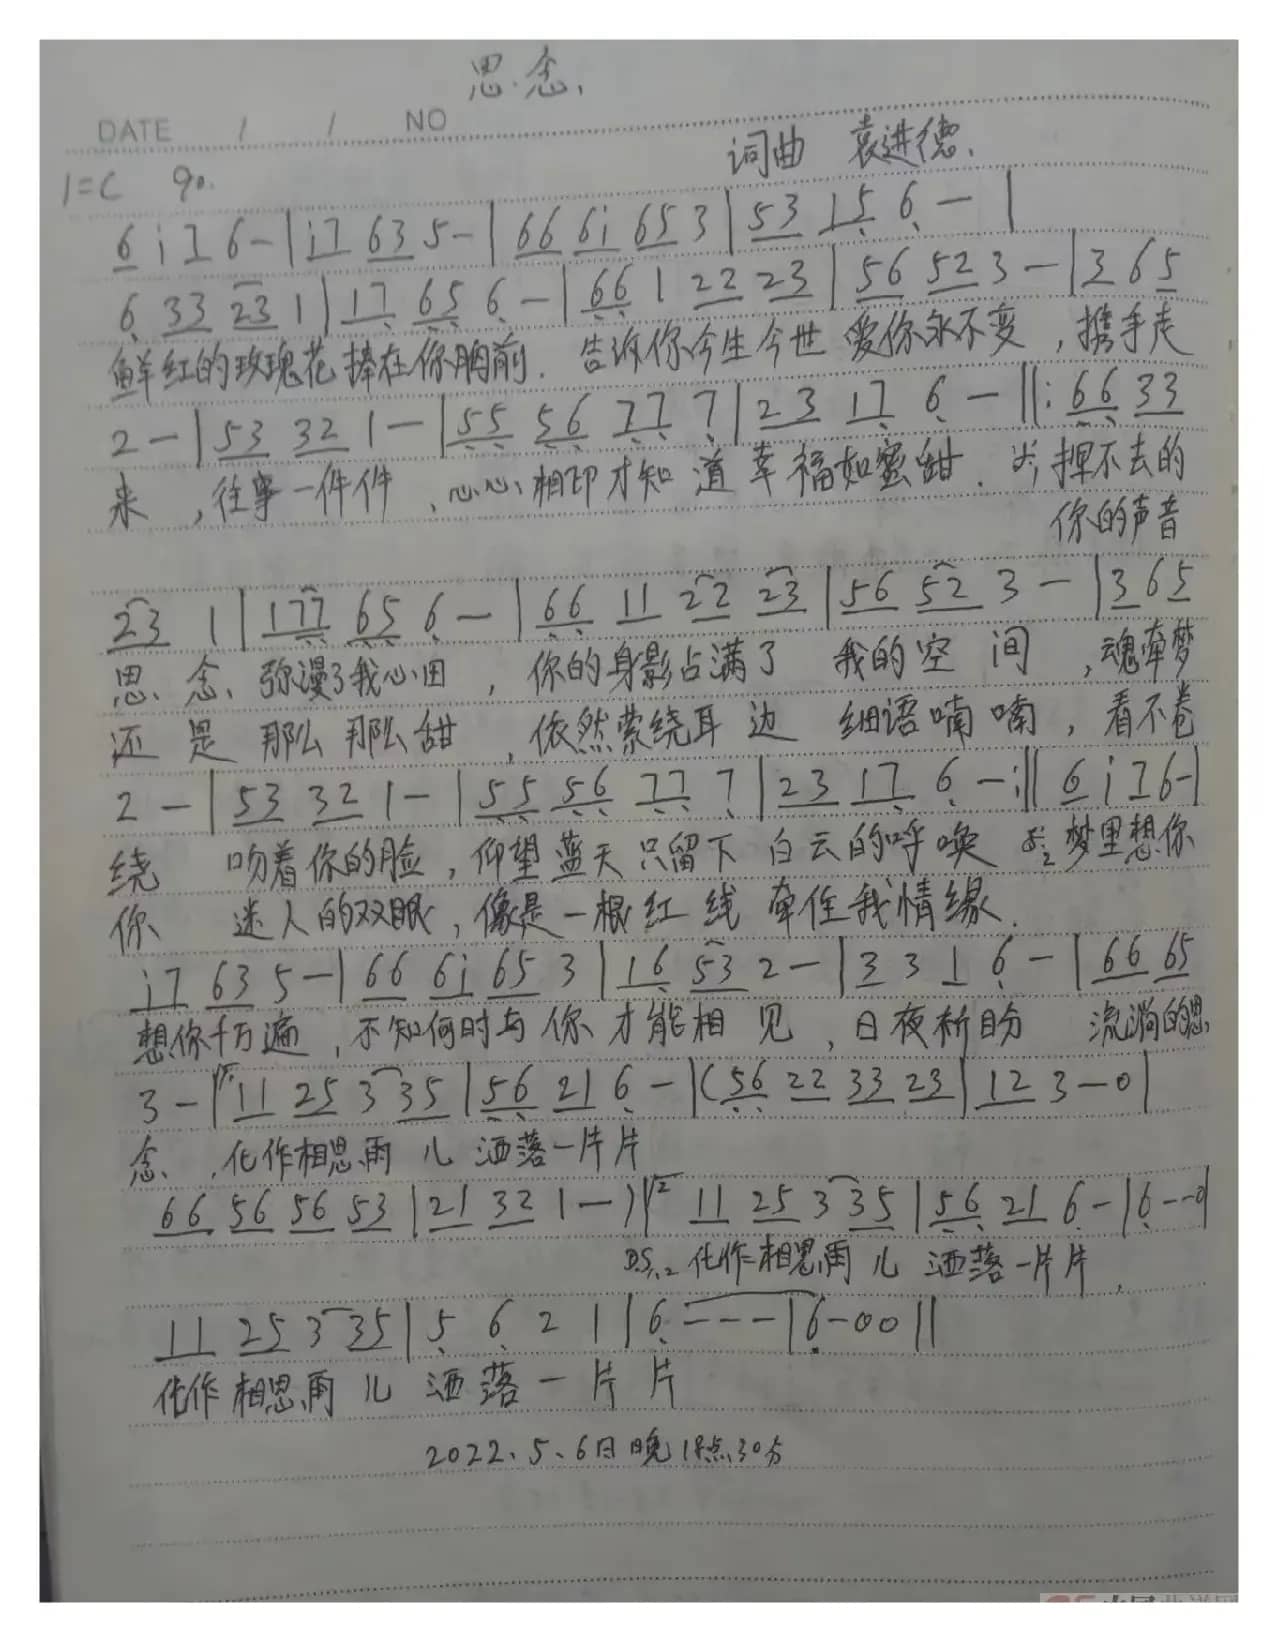 思念
DATE / / NO
词曲 袁进德
1=C 90.
6 i 7 6 - | i7 63 5 - | 66 6i 65 3 | 53 15 6 - |
6 33 23 1 | 17 65 6 - | 66 1 22 23 | 56 52 3 - | 3 65
鲜红的玫瑰花捧在你胸前. 告诉你今生今世 爱你永不变,携手走
2 - | 53 32 1 - | 55 56 77 7 | 23 17 6 - ||: 66 33
来,往事一件件,心心相印才知道幸福如蜜甜. 挥不去的
你的声音
23 1 | 177 65 6 - | 66 11 22 23 | 56 52 3 - | 3 65
思念 弥漫了我心田,你的身影占满了 我的空间,魂牵梦
还是那么那么甜,依然萦绕耳边 细语喃喃,看不卷
2 - | 53 32 1 - | 55 56 77 7 | 23 17 6 - :|| 6 i 7 6 - |
绕 吻着你的脸,仰望蓝天只留下白云的呼唤 梦里想你
你 迷人的双眼,像是一根红线牵住我情缘.
i7 63 5 - | 66 6i 65 3 | 16 53 2 - | 3 3 1 6 - | 66 65
想你千万遍,不知何时与你才能相见,日夜祈盼 流淌的思
3 - | 11 25 3 35 | 56 21 6 - | (56 22 33 23 | 12 3 - 0 |
念,化作相思雨儿洒落一片片
66 56 56 53 | 21 32 1 - ) | 2 11 25 3 35 | 56 21 6 - | 6 - - 0 |
D.S.1.2 化作相思雨儿洒落一片片,
11 25 3 35 | 5 6 2 1 | 6 - - - | 6 - 0 0 ||
化作相思雨儿洒落一片片
2022.5.6日晚18点30分